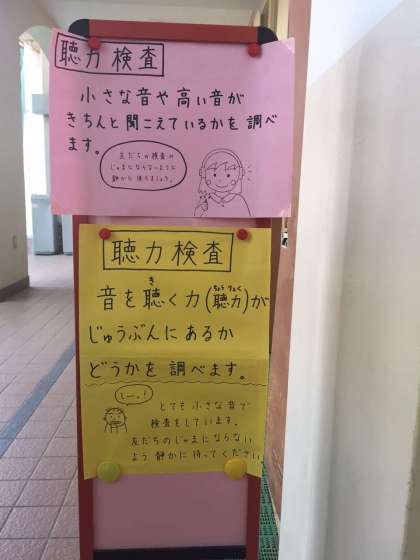 聴力検査
小さな音や高い音が
きちんと聞こえているかを調べ
ます。
友だちの検査の
じゃまにならないように
静かに待ちましょう。
聴力検査
音を聴く力(聴力)が
き
ちょうりょく
じゅうぶんにあるか
どうかを調べます。
しーっ!
とても小さな音で
検査をしています。
友だちのじゃまにならない
よう静かに待ってください